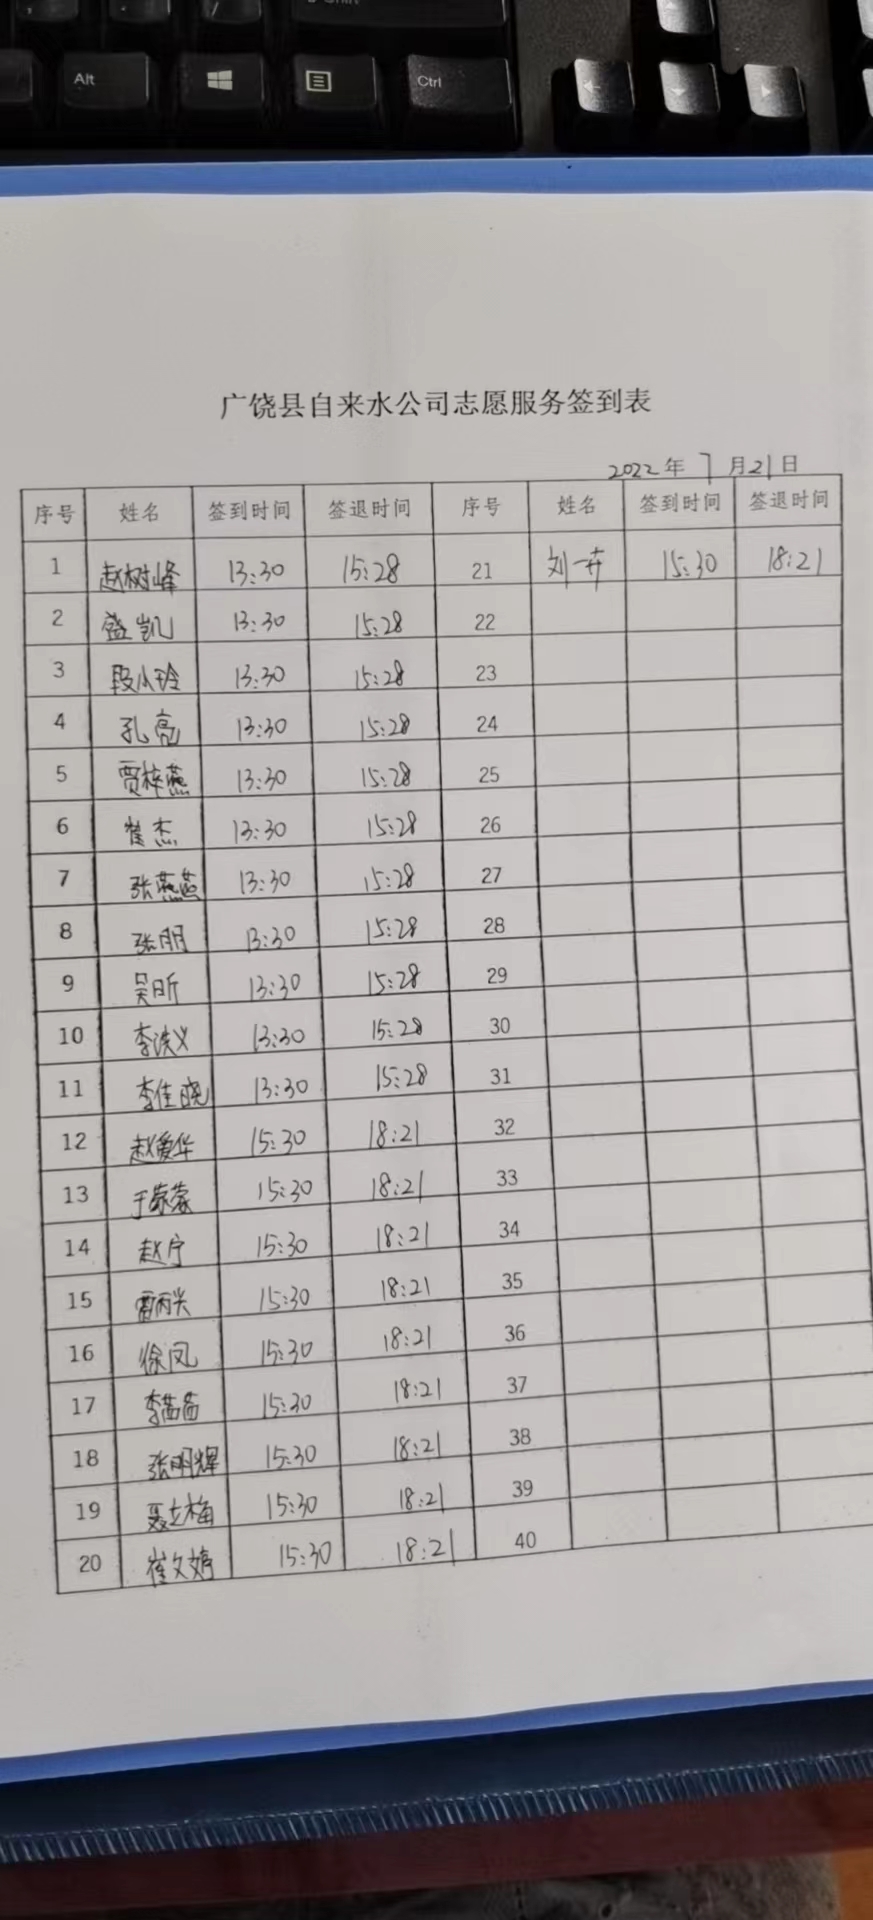 Shift
Alt
Ctrl
广饶县自来水公司志愿服务签到表
2022年 7 月21日
序号 姓名 签到时间 签退时间 序号 姓名 签到时间 签退时间
1 赵树峰 13:30 15:28 21 刘一卉 15:30 18:21
2 盛凯 13:30 15:28 22
3 段小玲 13:30 15:28 23
4 孔亮 13:30 15:28 24
5 贾梓燕 13:30 15:28 25
6 崔杰 13:30 15:28 26
7 张燕燕 13:30 15:28 27
8 张朋 13:30 15:28 28
9 吴昕 13:30 15:28 29
10 李洪义 13:30 15:28 30
11 李佳晓 13:30 15:28 31
12 赵爱华 15:30 18:21 32
13 于蒙蒙 15:30 18:21 33
14 赵宁 15:30 18:21 34
15 15:30 18:21 35
16 徐凤 15:30 18:21 36
17 李茜茜 15:30 18:21 37
18 张明辉 15:30 18:21 38
19 聂立梅 15:30 18:21 39
20 崔文婷 15:30 18:21 40